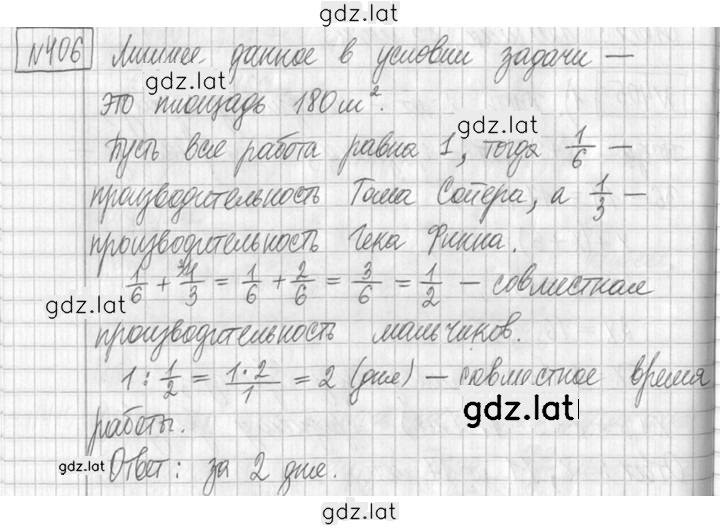 gdz.lat
№406 Лишнее данное в условии задачи —
gdz.lat
это площадь 180 м².
gdz.lat
Пусть вся работа равна 1, тогда 1/6 —
производительность Тома Сойера, а 1/3 —
производительность Гека Финна.
1/6 + ²⁄1/3 = 1/6 + 2/6 = 3/6 = 1/2 — совместная
gdz.lat
производительность мальчиков.
1 : 1/2 = 1·2/1 = 2 (дня) — совместное время
gdz.lat
работы.
gdz.lat
Ответ: за 2 дня.
gdz.lat